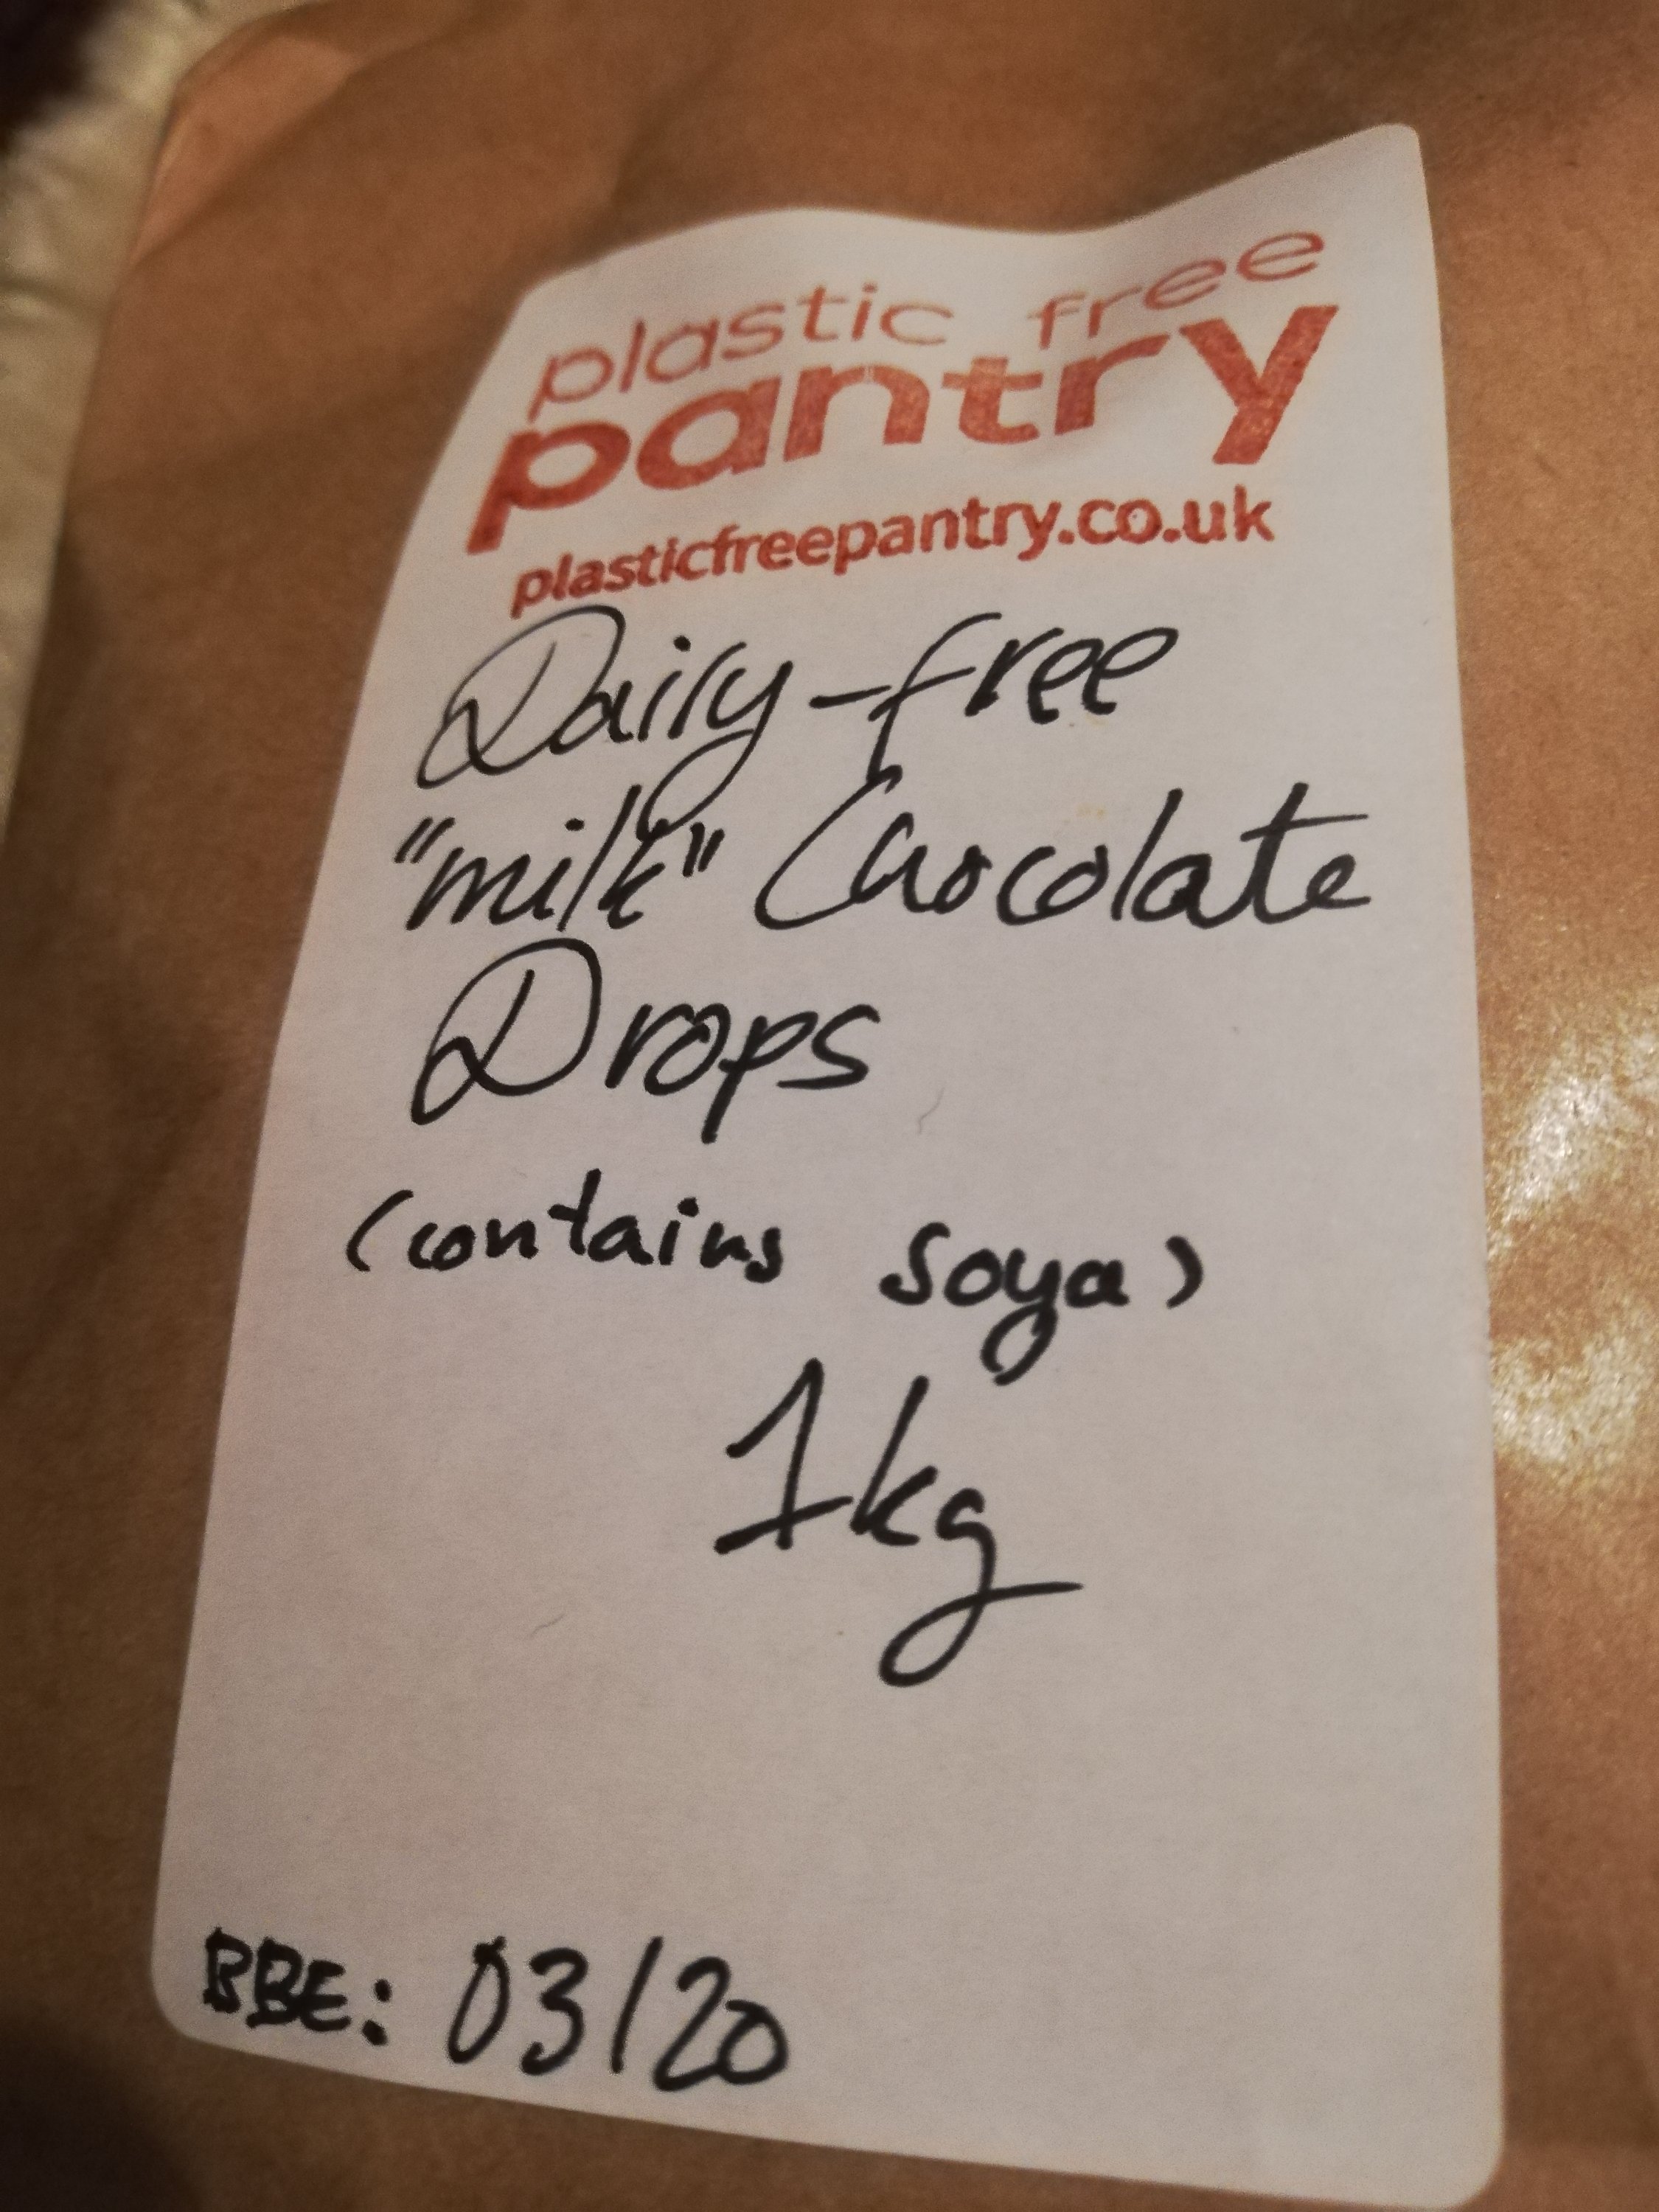 plastic free
pantry
plasticfreepantry.co.uk
Dairy-free
"milk" Chocolate
Drops
(contains soya)
1kg
BBE: 03/20